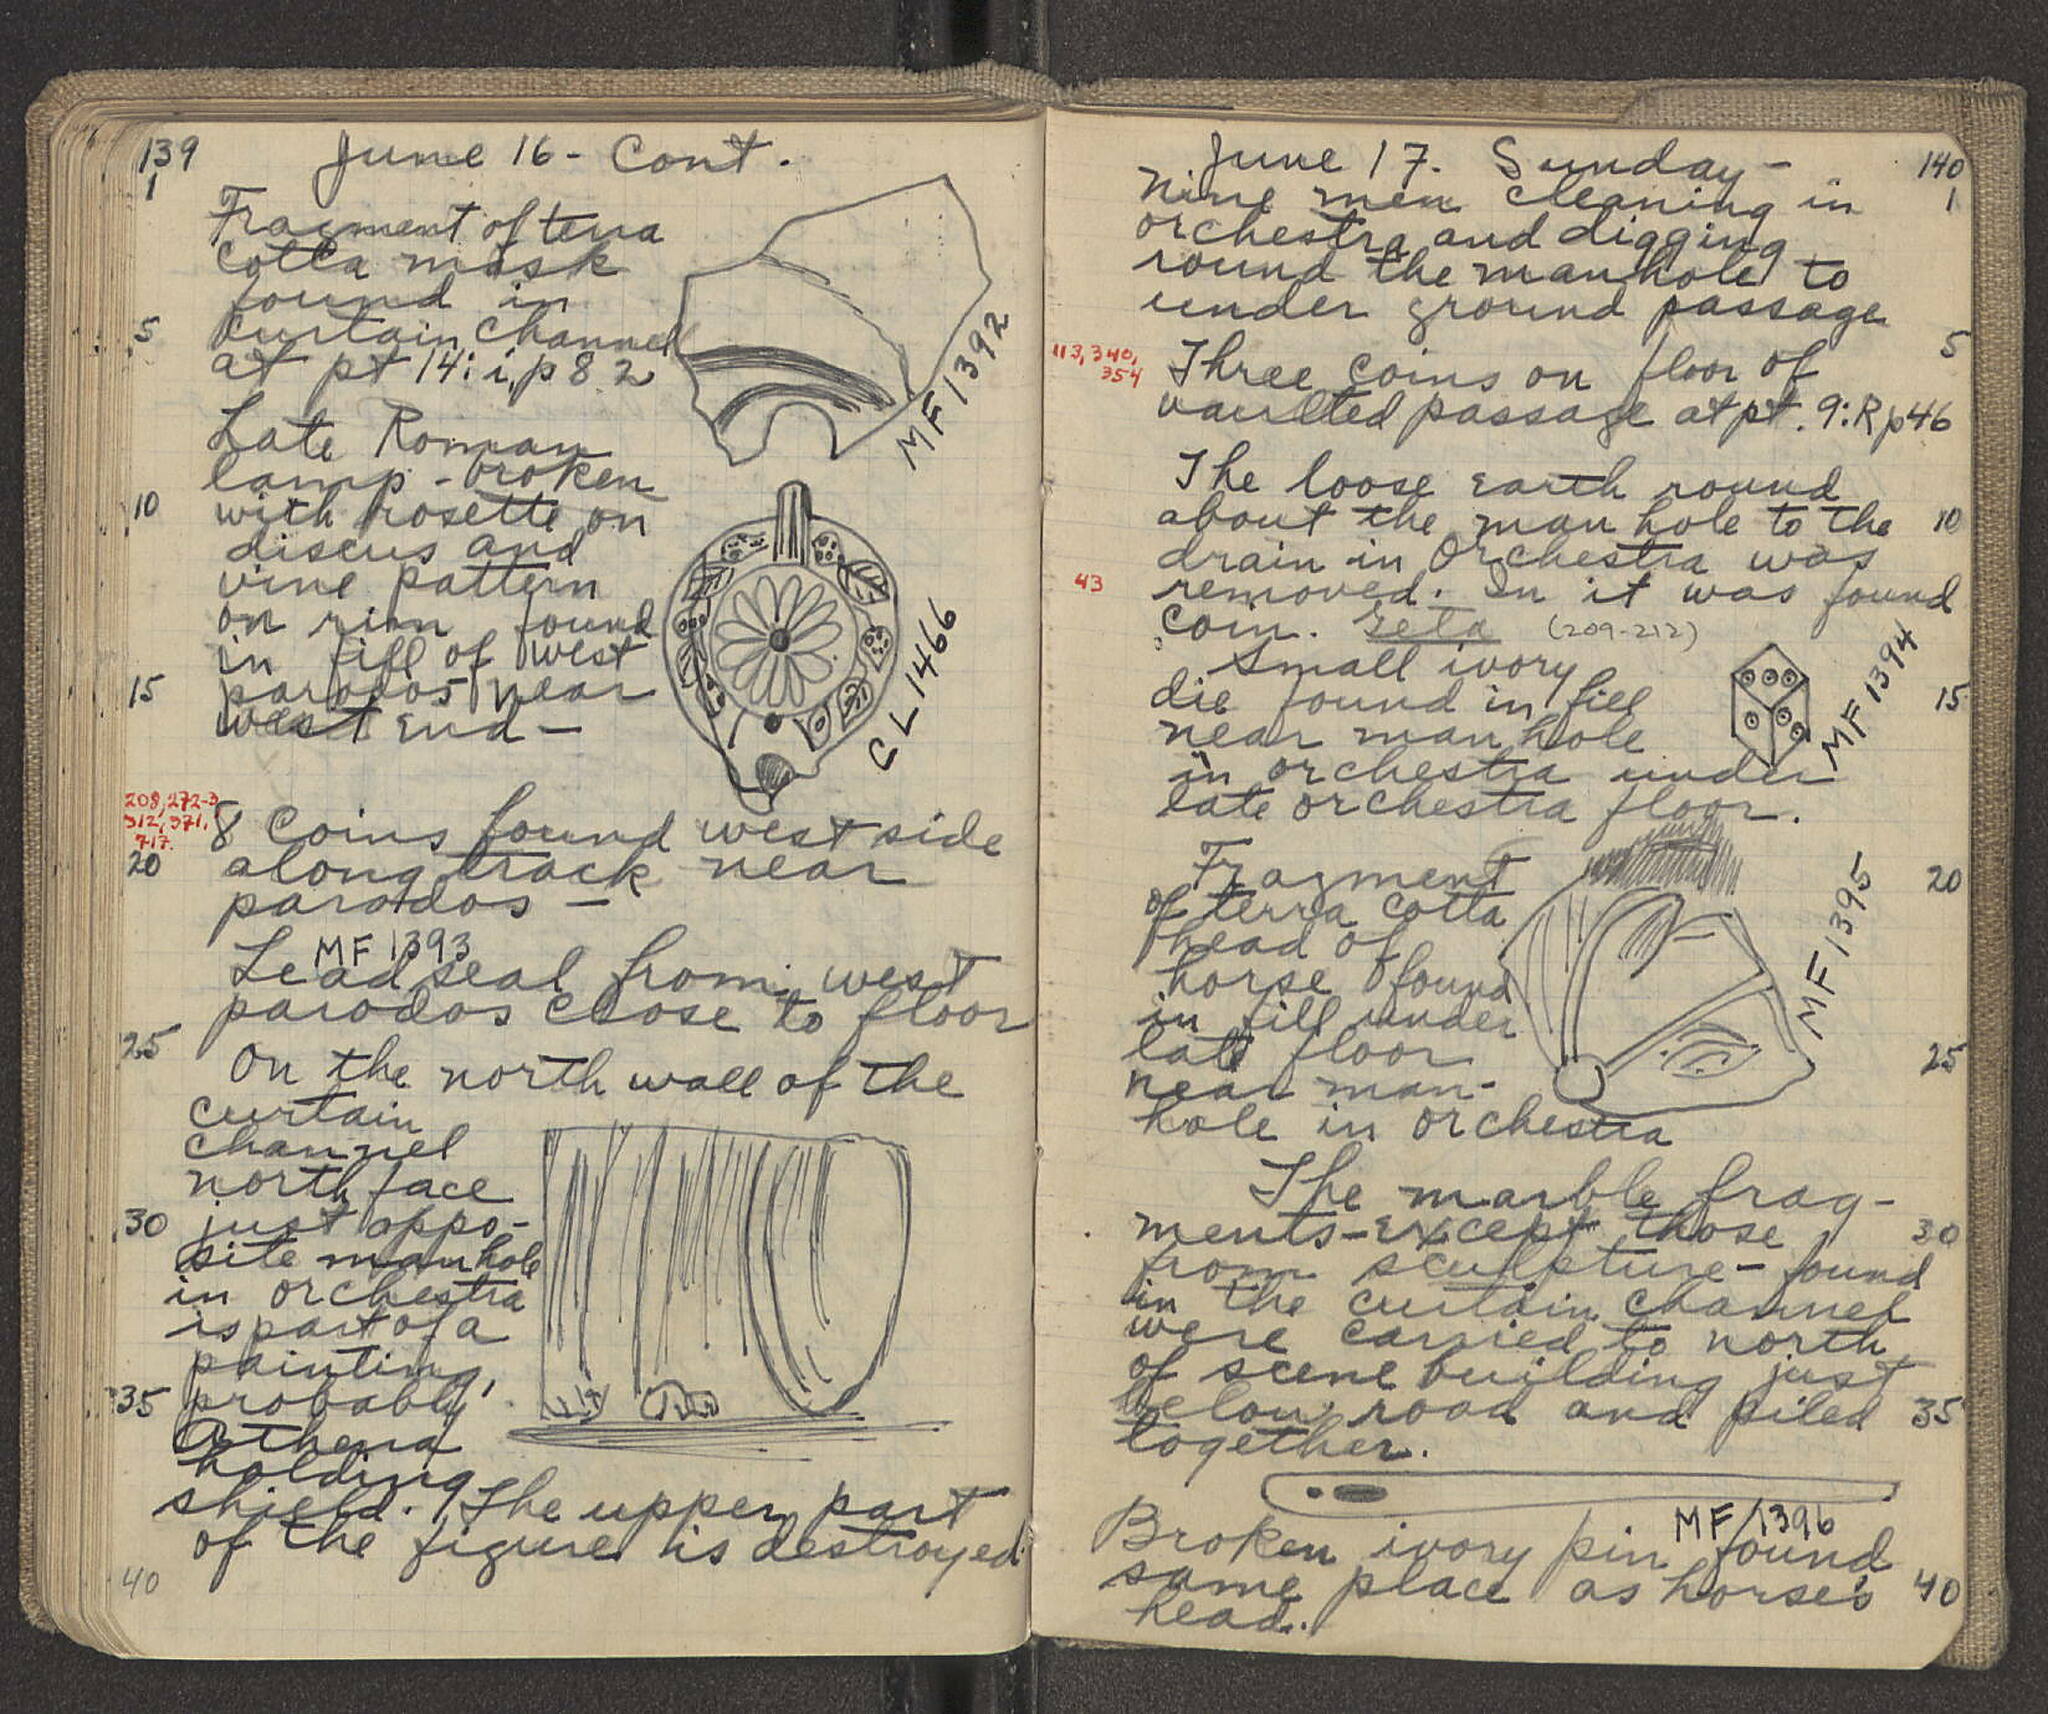 139
June 16 - Cont.
1
Fragment of terra
cotta mask
found in
5
curtain channel
at pt 14: i, p 82
MF 1392
Late Roman
lamp - broken
10
with rosette on
discus and
vine pattern
on rim found
in fill of west
15
parodos near
west end -
CL 1466
208, 272-3
312, 371,
717.
8 coins found west side
20
along track near
parodos -
MF 1393
Lead seal from west
parodos close to floor
25
On the north wall of the
curtain
channel
north face
30
just oppo-
site manhole
in orchestra
is part of a
painting,
35
probably
Athena
holding
shield. The upper part
of the figure is destroyed
40
June 17. Sunday -
140
Nine men cleaning in
1
orchestra and digging
round the manhole to
under ground passage
5
113, 340,
354
Three coins on floor of
vaulted passage at pt. 9: R p 46
The loose earth round
about the man hole to the
10
drain in Orchestra was
43
removed. In it was found
coin. Geta (209-212)
Small ivory
die found in fill
15
near man hole
in orchestra under
late orchestra floor.
MF 1394
Fragment
20
of terra cotta
head of
horse found
in fill under
late floor
25
near man-
hole in orchestra
MF 1395
The marble frag-
ments - except those
30
from sculpture - found
in the curtain channel
were carried to north
of scene building just
below road and piled
35
together.
MF 1396
Broken ivory pin found
same place as horse's
40
head.